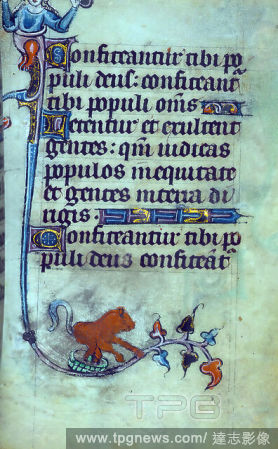 Confiteantur tibi po
puli deus: confiteant
tibi populi om̄s
Letentur et exultent
gentes: qm̄ iudicas
populos in equitate
et gentes in terra di
rigis.
Confiteantur tibi po
puli deus confiteāt
TPG
www.tpgnews.com/ 達志影像